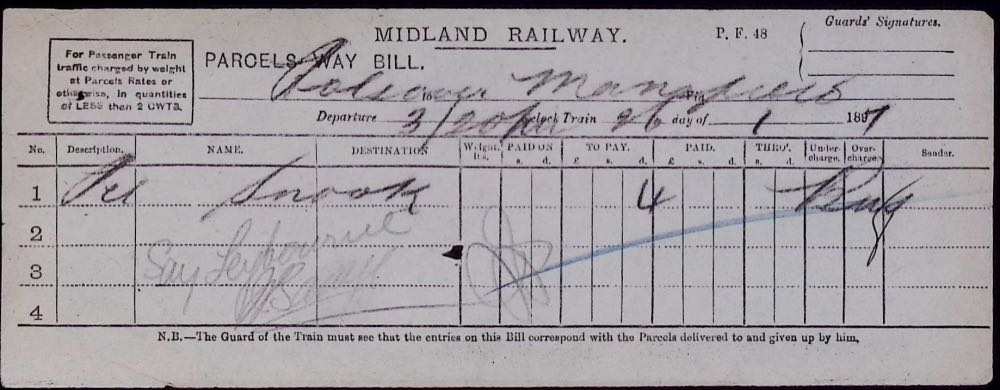 MIDLAND RAILWAY. P. F. 48 Guards' Signatures.
For Passenger Train
traffic charged by weight
at Parcels Rates or
otherwise, in quantities
of LESS than 2 CWTS.
PARCELS WAY BILL.
Bolsover to Mansfield
Departure 3/20 o'clock Train 26 day of 1 1897
No. Description. NAME. DESTINATION Weight. lbs. PAID ON s. d. TO PAY. £ s. d. PAID. £ s. d. THRO'. s. d. Under-charge. Over-charge. Sender.
1 Pcl Snook 4
2
3
4
N.B.—The Guard of the Train must see that the entries on this Bill correspond with the Parcels delivered to and given up by him,